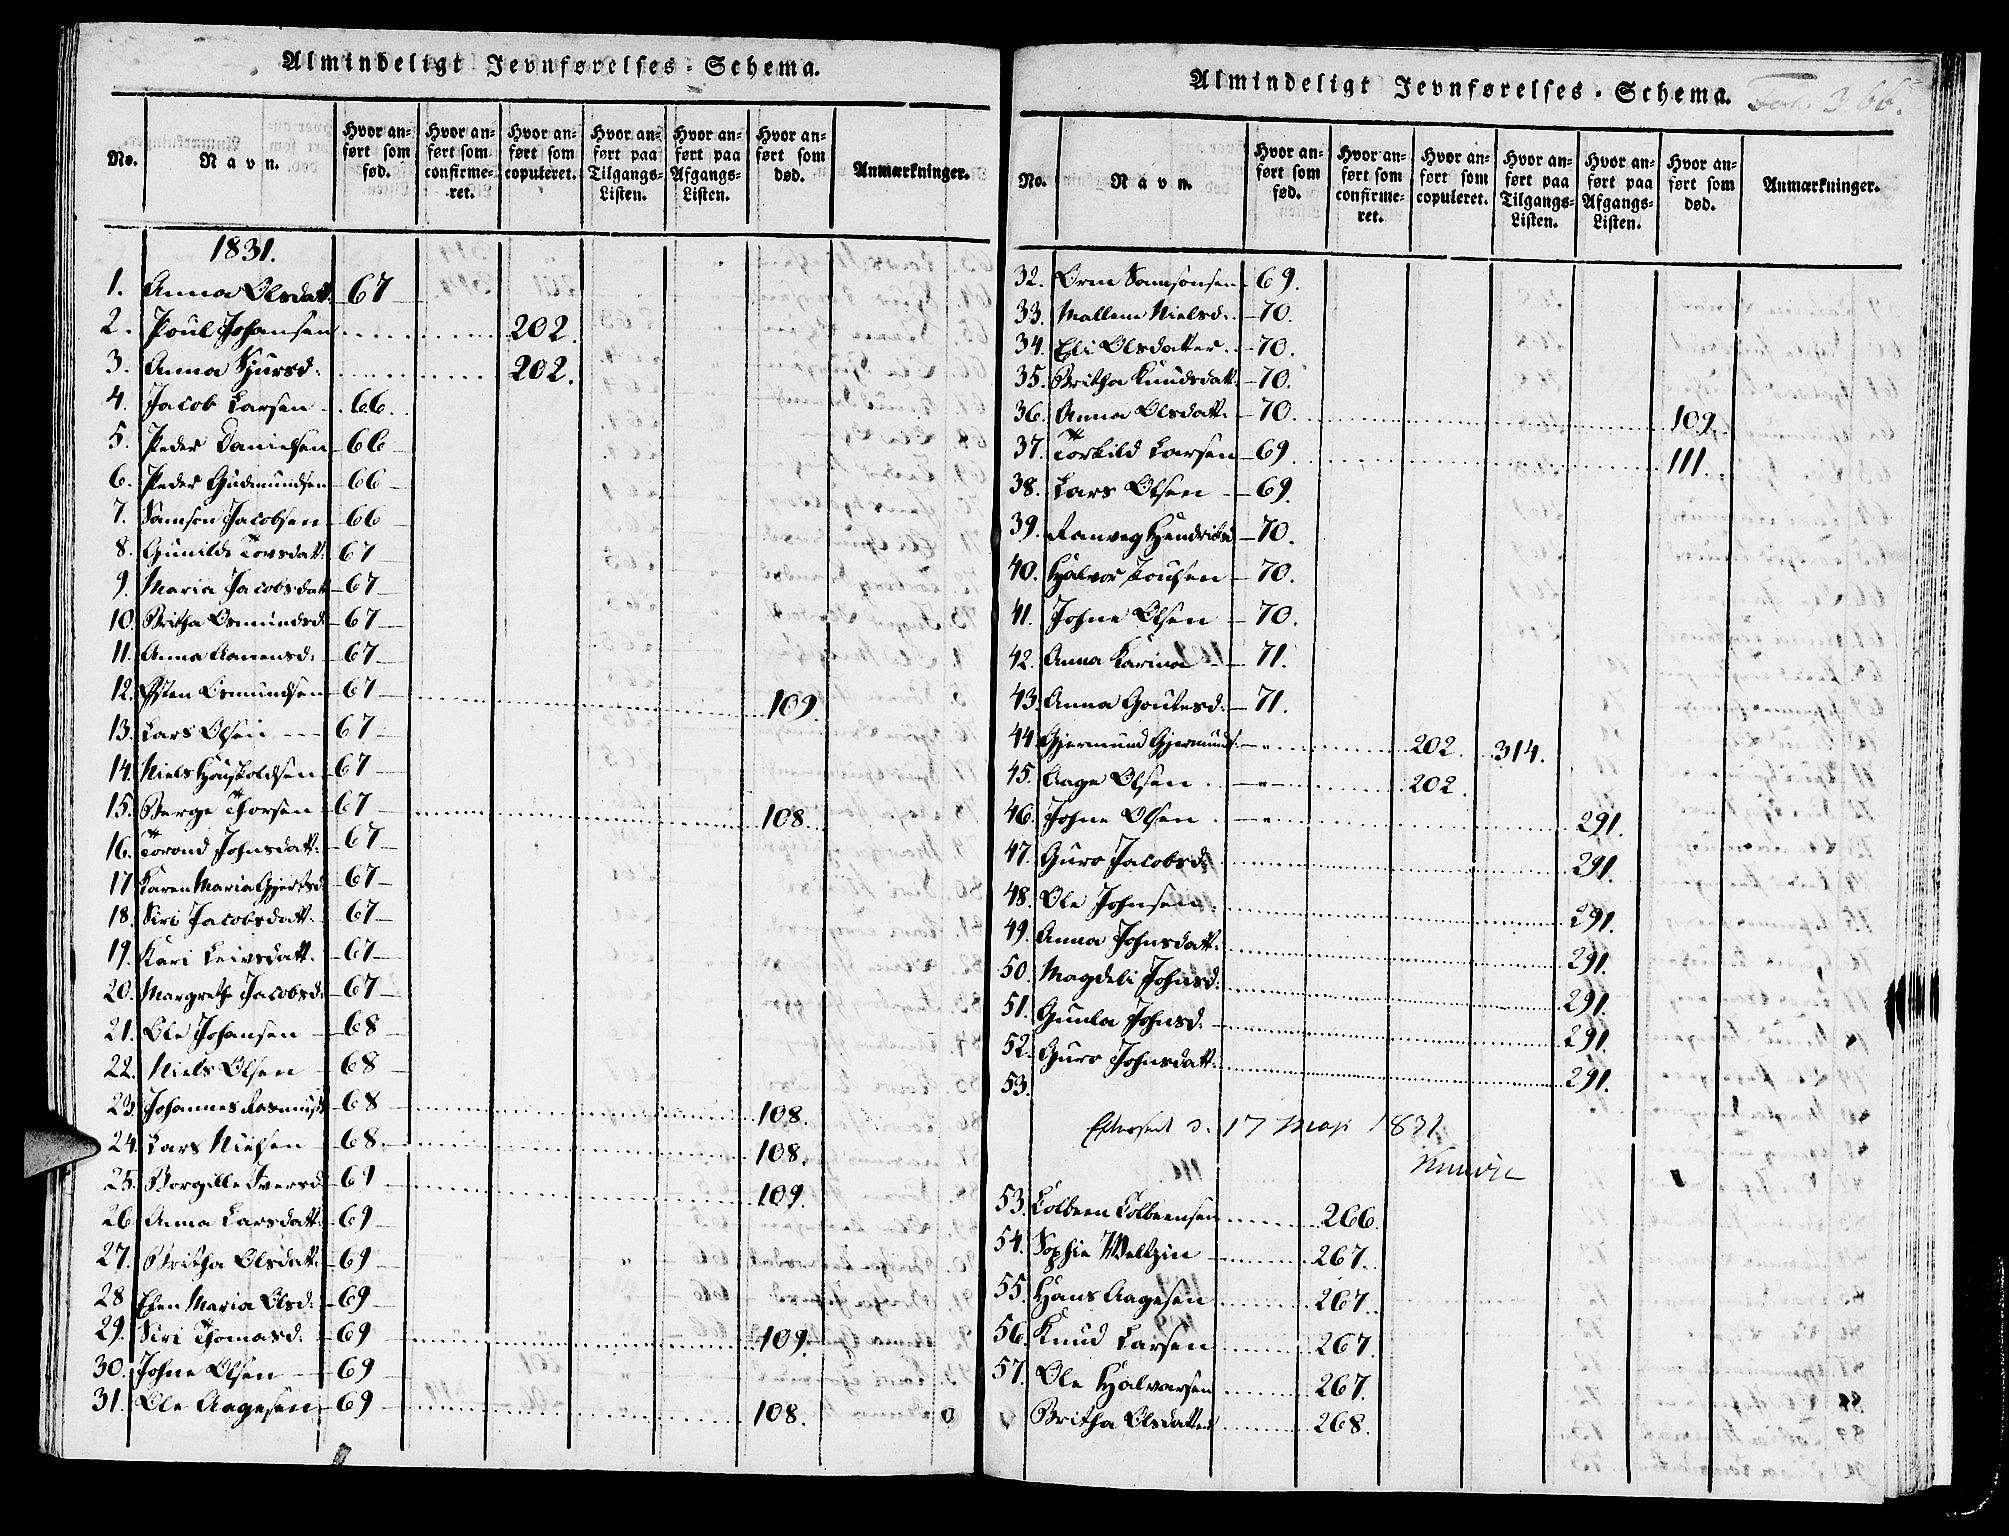 Almindeligt Jevnførelses-Schema.
No. Navn. Hvor anført som fød. Hvor anført som confirmeret. Hvor anført som copuleret. Hvor anført paa Tilgangs-Listen. Hvor anført paa Afgangs-Listen. Hvor anført som død. Anmærkninger.
1831.
1. Anna Olsdatt. 67
2. Poul Johansen 202.
3. Anna Sjursd. 202.
4. Jacob Larsen 66.
5. Peder Danielsen 66
6. Peder Gudmundsen 66
7. Samson Jacobsen 66
8. Gunilde Torsdatt. 67
9. Maria Jacobsdatt 67
10. Britha Osmundsd. 67
11. Anna Aanensd. 67
12. Østen Osmundsen 67 109.
13. Lars Olsen 67
14. Niels Houskoldsen 67
15. Berge Thorsen 67 108.
16. Torond Johnsdatt. 67
17. Karen Maria Gjertsd. 67
18. Siri Jacobsdatt. 67
19. Kari Leivsdatt. 67
20. Margrethe Jacobsd. 67
21. Ole Johansen 68
22. Niels Olsen 68
23. Johannes Rasmus. 68 108.
24. Lars Nielsen 68. 108.
25. Borgille Iversd. 69 109.
26. Anna Larsdatt. 69
27. Britha Olsdatt. 69
28 Elen Maria Olsd. 69
29. Siri Thomasd. 69 109.
30. Johne Olsen 69
31. Ole Aagesen 69 108.
Almindeligt Jevnførelses-Schema. Fol. 366.
No. Navn. Hvor anført som fød. Hvor anført som confirmeret. Hvor anført som copuleret. Hvor anført paa Tilgangs-Listen. Hvor anført paa Afgangs-Listen. Hvor anført som død. Anmærkninger.
32. Orm Samsonsen 69.
33. Mallene Nielsd. 70.
34. Eli Olsdatter 70.
35. Britha Knudsdatt. 70.
36. Anna Olsdatt. 70 109.
37. Torkild Larsen 69 111.
38. Lars Olsen 69.
39. Ranveg Hendriksd 70.
40. Halvor Poulsen 70.
41. Johne Olsen 70.
42. Anna Karina 71.
43. Anna Goutesd. 71.
44. Gjermund Gjermunds. 202. 314.
45. Aage Olsen 202.
46. Johne Olsen 291.
47. Guro Jacobsd. 291.
48. Ole Johnsen 291.
49. Anna Johnsdatt. 291.
50. Magdeli Johnsd. 291.
51. Gunla Johnsd. 291.
52. Guro Johnsdatt. 291.
53.
Efterseet d. 17 Maji 1831
53. Colbeen Colbeensen 266.
54. Sophie Weltzin 267.
55. Hans Aagesen 267.
56. Knud Larsen 267.
57. Ole Halvorsen 267.
Britha Olsdatter 268.